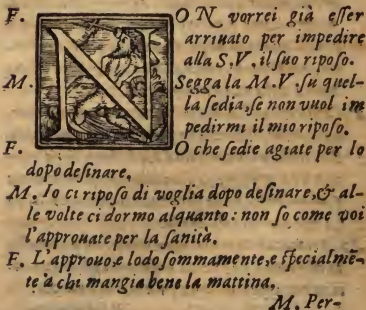 F. NON vorrei già eſſer
arriuato per impedire
alla S.V. il ſuo ripoſo.
M. Segga la M.V. ſu quel-
la ſedia, ſe non vuol im
pedirmi il mio ripoſo.
F. O che ſedie agiate per lo
dopo deſinare.
M. Io ci ripoſo di voglia dopo deſinare, & al-
le volte ci dormo alquanto: non ſo come voi
l'approuate per la ſanità.
F. L'approuo, e lodo ſommamente, e ſpecialmē-
te à chi mangia bene la mattina.
M. Per-